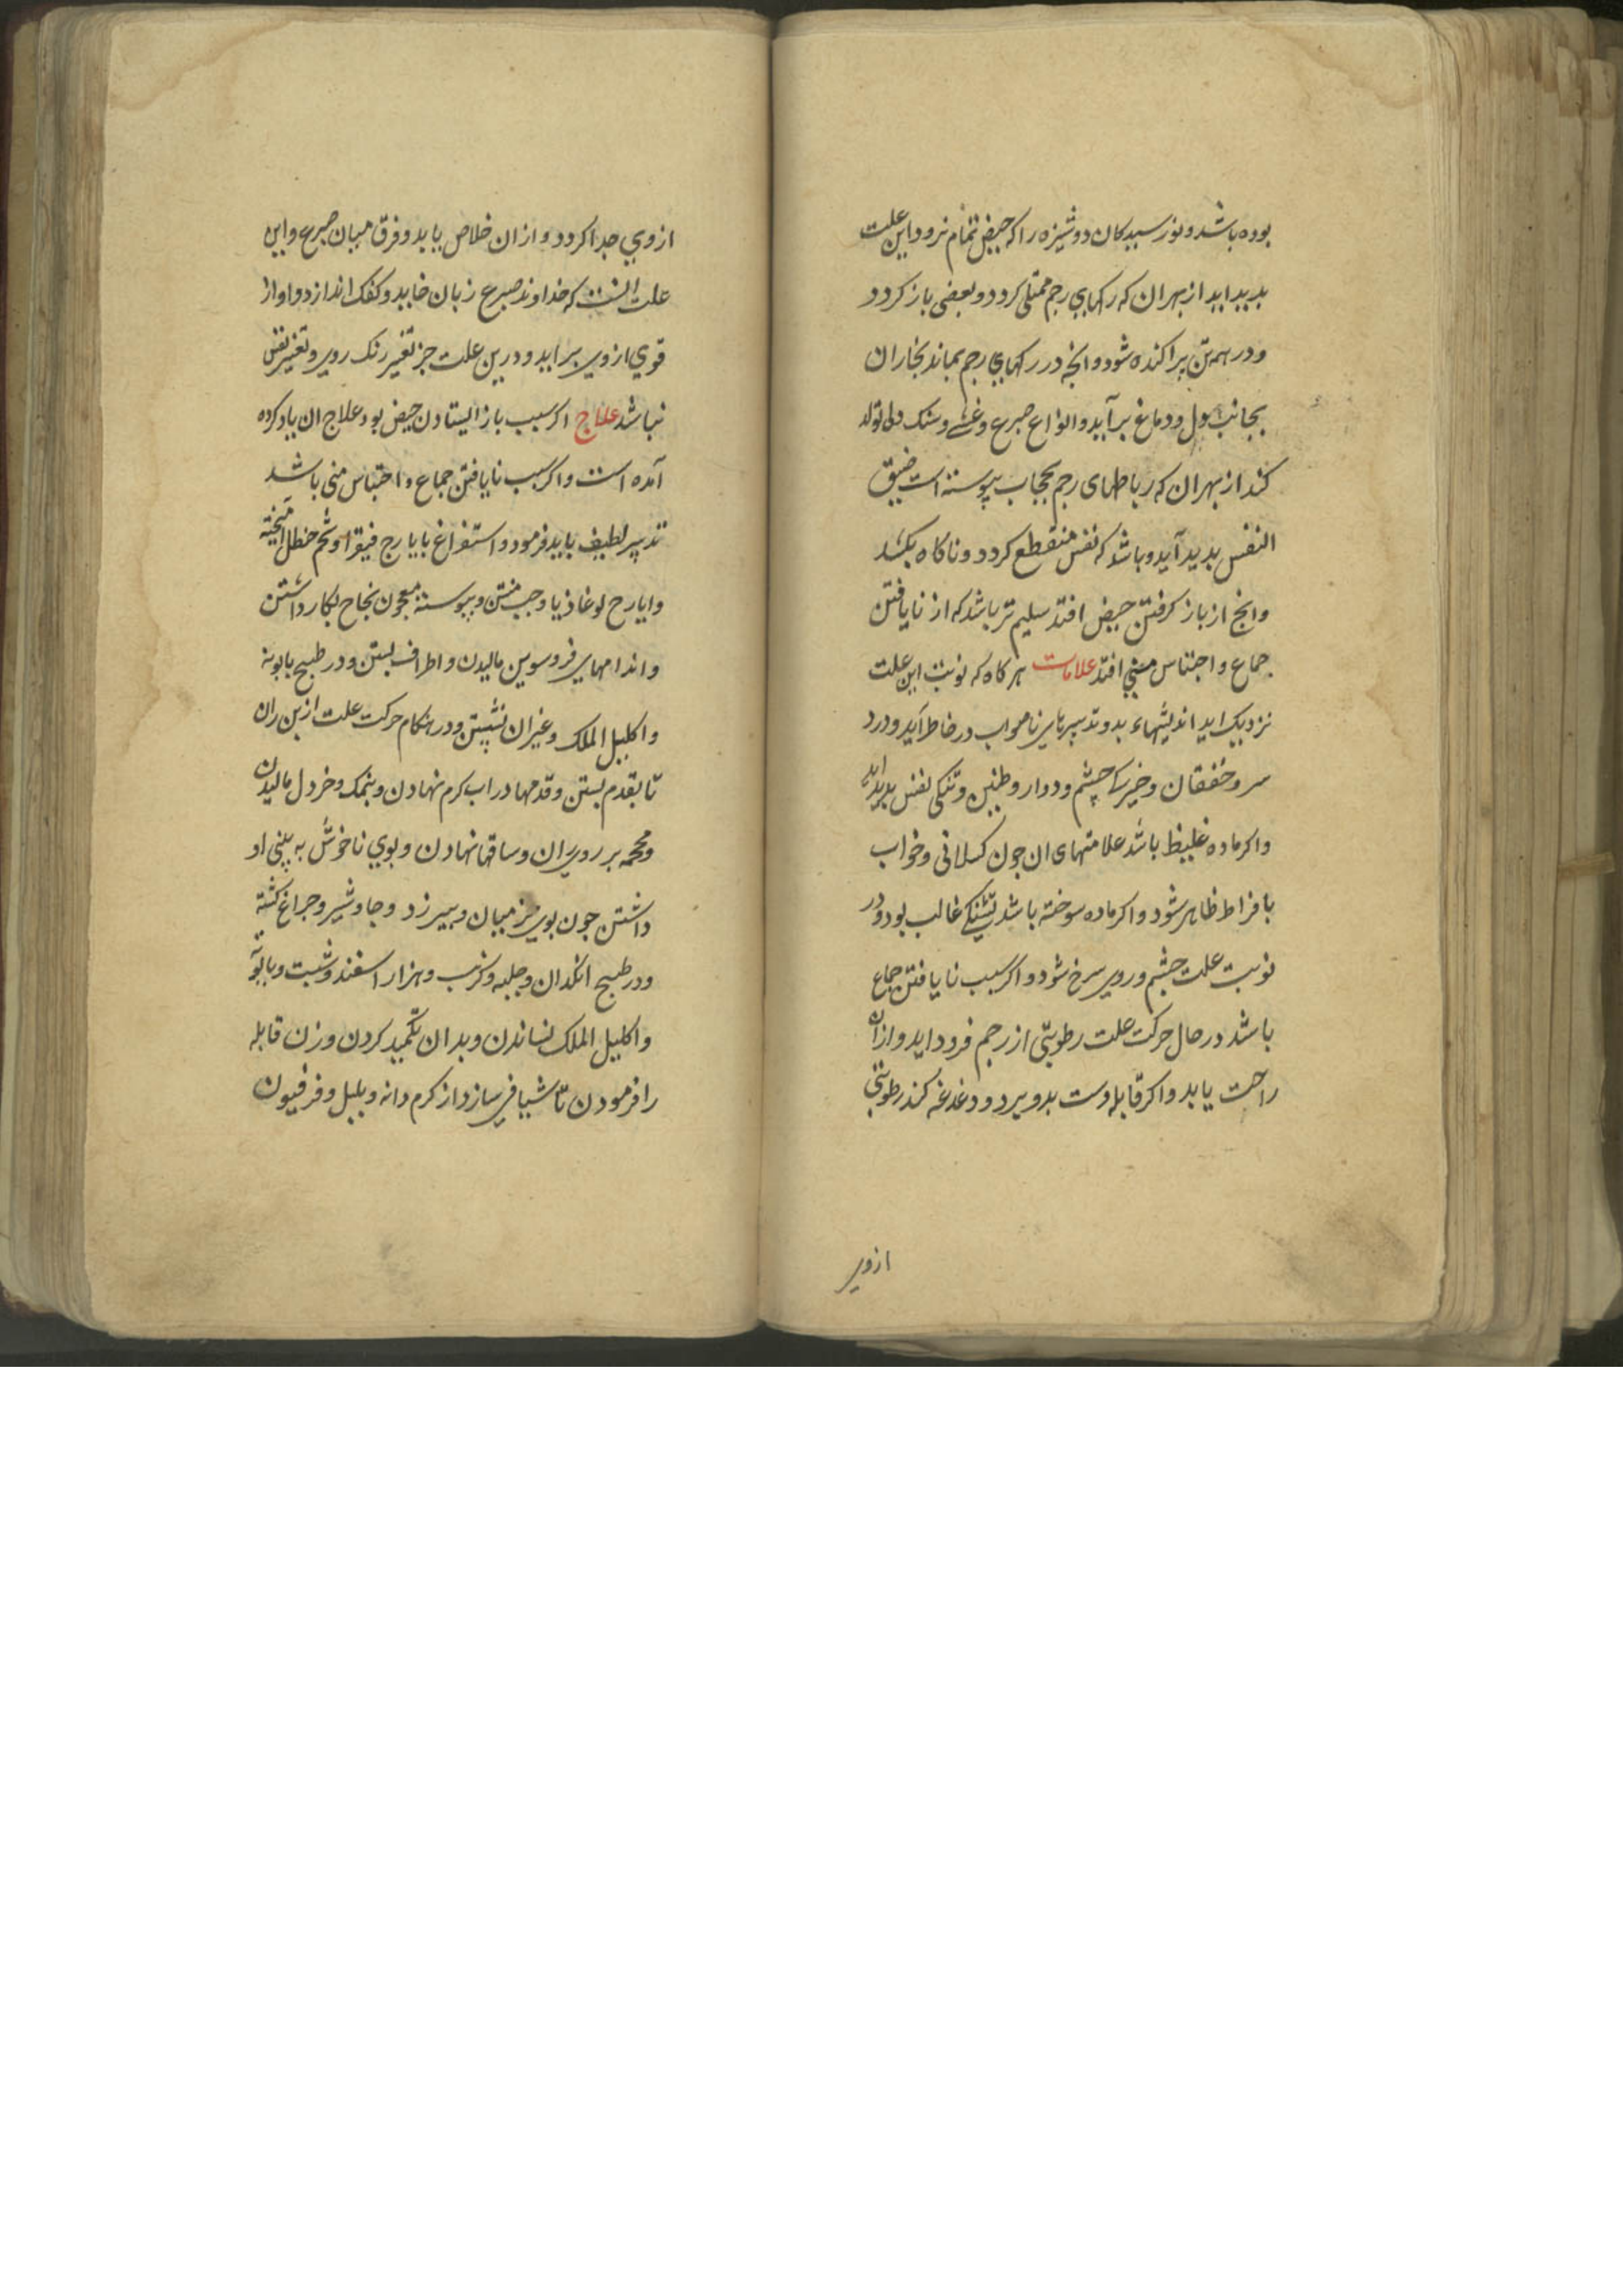 بوده باشد و نورسیدکان دوشیزه را که حیض تمام نرود این علت
بدید اید از بهر ان که رکهای رحم ممتلی کردد و بعضی باز کردد
و در همه تن پراکنده شود و انچه در رکهای رحم بماند بخار ان
بجانب دل و دماغ برآید و انواع صرع و غشی و تنک دلی تولد
کند از بهر ان که رباطهای رحم بحجاب پیوسته است ضیق
النفس بدید آید و باشد که نفس منقطع کردد و ناکاه بکشد
وانچ از باز کرفتن حیض افتد سلیم تر باشد که از نایافتن
جماع و احتباس منی افتد علامات هرکاه که نوبت این علت
نزدیک اید اندیشهاء بد و تدبیرهای ناصواب در خاطر آید و درد
سر و خفقان و خیرکی چشم و دوار و طنین و تنکی نفس بدید اید
و اکر ماده غلیظ باشد علامتهای ان جون کسلانی و خواب
بافراط ظاهر شود و اکر ماده سوخته باشد تشنکی غالب بود و در
نوبت علت چشم و روی سرخ شود و اکر سبب نایافتن جماع
باشد در حال حرکت علت رطوبتی از رحم فرود اید و از ان
راحت یابد و اکر قابله دست بدو برد و دغدغه کند رطوبتی
ازوی
ازوی جدا کردد و از ان خلاص یابد و فرق میان صرع و این
علت انست که خداوند صرع زبان خاید و کفک اندازد و اواز
قوی ازوی براید و درین علت جز تغیر رنک روی و تغیر نفس
نباشد علاج اکر سبب باز ایستادن حیض بود علاج ان یاد کرده
آمده است و اکر سبب نایافتن جماع و احتباس منی باشد
تدبیر لطیف باید فرمود و استفراغ بایارج فیقرا و شحم حنظل امیخته
و ایارج لوغاذیا و حب منتن و پیوسته معجون نجاح بکار داشتن
و اندامهای فروسوین مالیدن و اطراف بستن و در طبیخ بابونه
و اکلیل الملک و غیر ان نشستن و در هنکام حرکت علت از بن ران
تا بقدم بستن و قدمها در اب کرم نهادن و بنمک و خردل مالیدن
و محجمه بر روی ران و ساقها نهادن و بوی ناخوش به بینی او
داشتن جون بوی میان و بیرزد و جاوشیر و جراغ کشته
و در طبیخ انکدان و حلبه و کرنب و هزار اسفند و شبت و بابونه
و اکلیل الملک نشاندن و بدان تکمید کردن و زن قابله
را فرمودن تا شیافی سازد از کرم دانه و بلبل و فرفیون